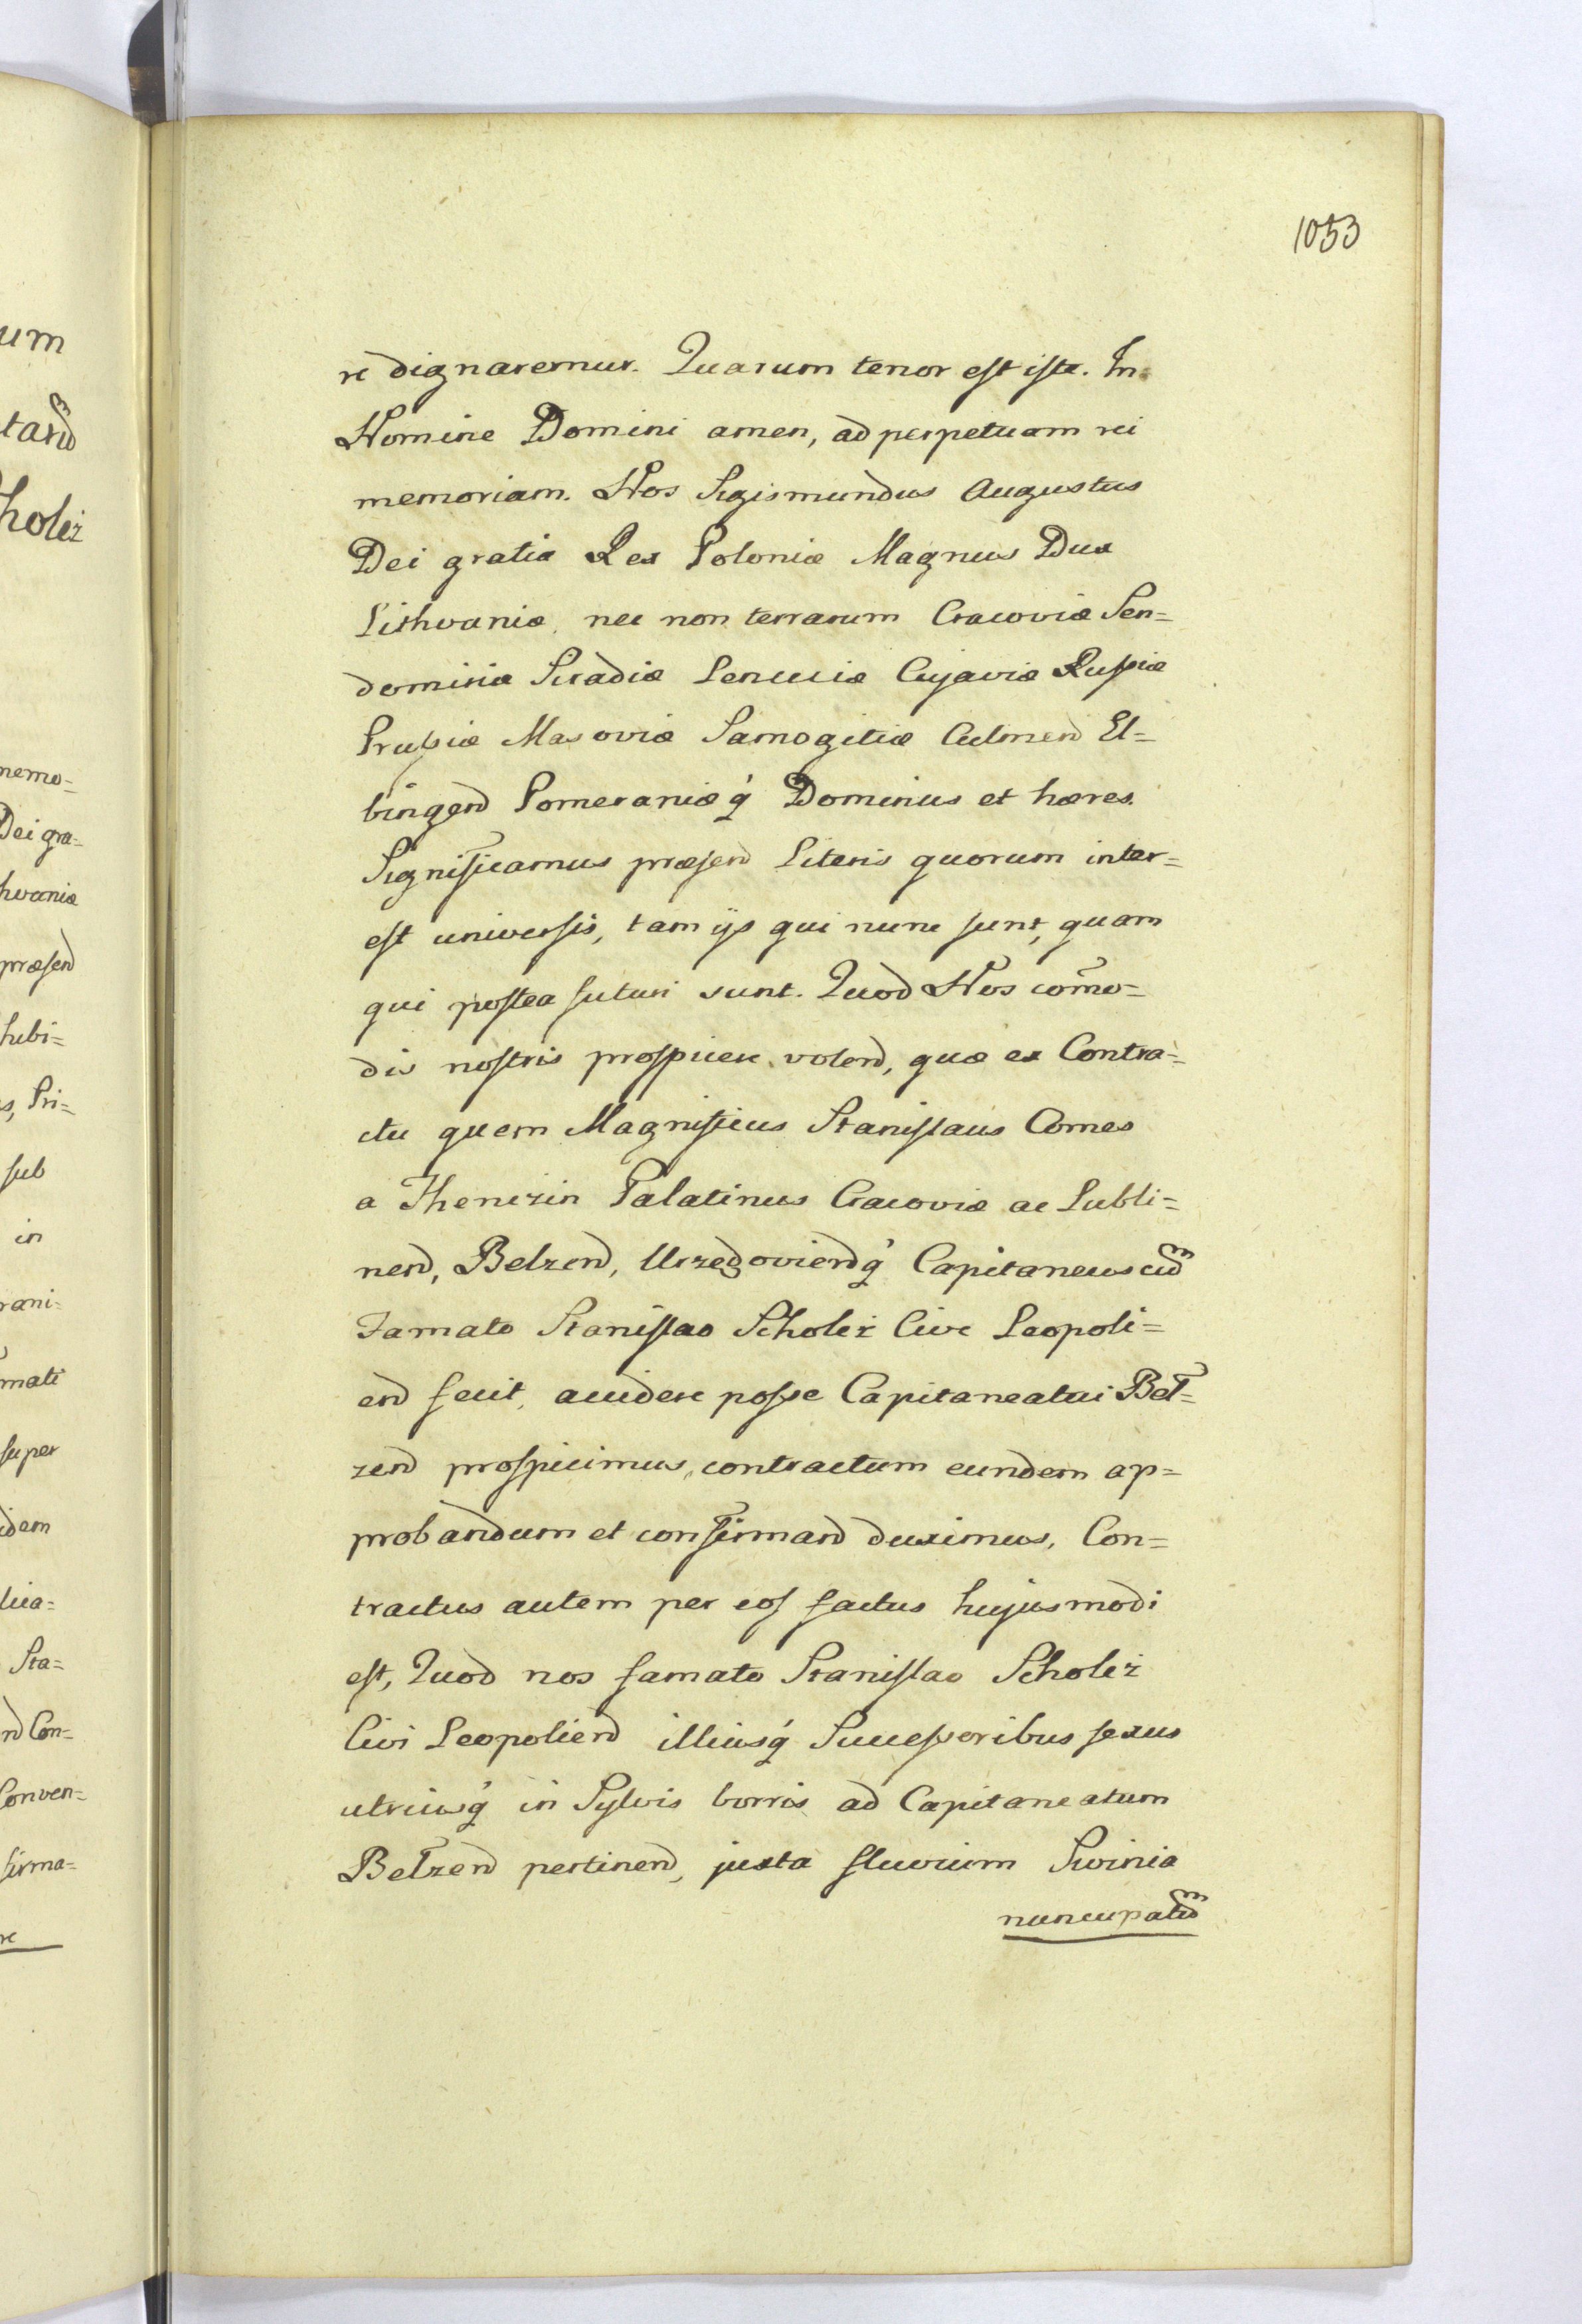 1053
re dignaremur. Quarum tenor est iste. In
Nomine Domini amen, ad perpetuam rei
memoriam. Nos Sigismundus Augustus
Dei gratia Rex Poloniæ Magnus Dux
Lithvaniæ, nec non terrarum Cracoviæ Sen=
domiriæ Siradiæ Lenciciæ Cujaviæ Russiæ
Prussiæ Masoviæ Samogitiæ Culmen̄ El=
bingen̄ Pomeraniæq́ Dominus et hæres.
Significamus præsen̄ Literis quorum inter=
est universis, tam ijs qui nunc sunt, quam
qui postea futuri sunt. Quod Nos com̃o=
dis nostris prospicere volen̄, quæ ex Contra=
ctu quem Magnificus Stanislaus Comes
a Thenczin Palatinus Cracoviæ ac Lubli=
nen̄, Belzen̄, Urzędovien̄q́ Capitaneus cum̃
Famato Stanislao Scholcz Cive Leopoli=
en̄ fecit, accidere posse Capitaneatui Beł=
zen̄ prospicimus, contractum eundem ap=
probandum et confirman̄ duximus, Con=
tractus autem per eos factus hujusmodi
est, Quod nos famato Stanislao Scholcz
Civi Leopolien̄ illiusq́ Successoribus sexus
utriusq́ in Sylvis borris ad Capitaneatum
Bełzen̄ pertinen̄, juxta fluvium Swinia
nuncupatum̃
um
tan̄
holcz
memo=
Dei gra=
hvaniæ
præsen̄
hubi=
s, Pri=
sub
in
rani=
mati
super
idem
lica=
Sta=
n̄ Con=
Conven=
firma=
re